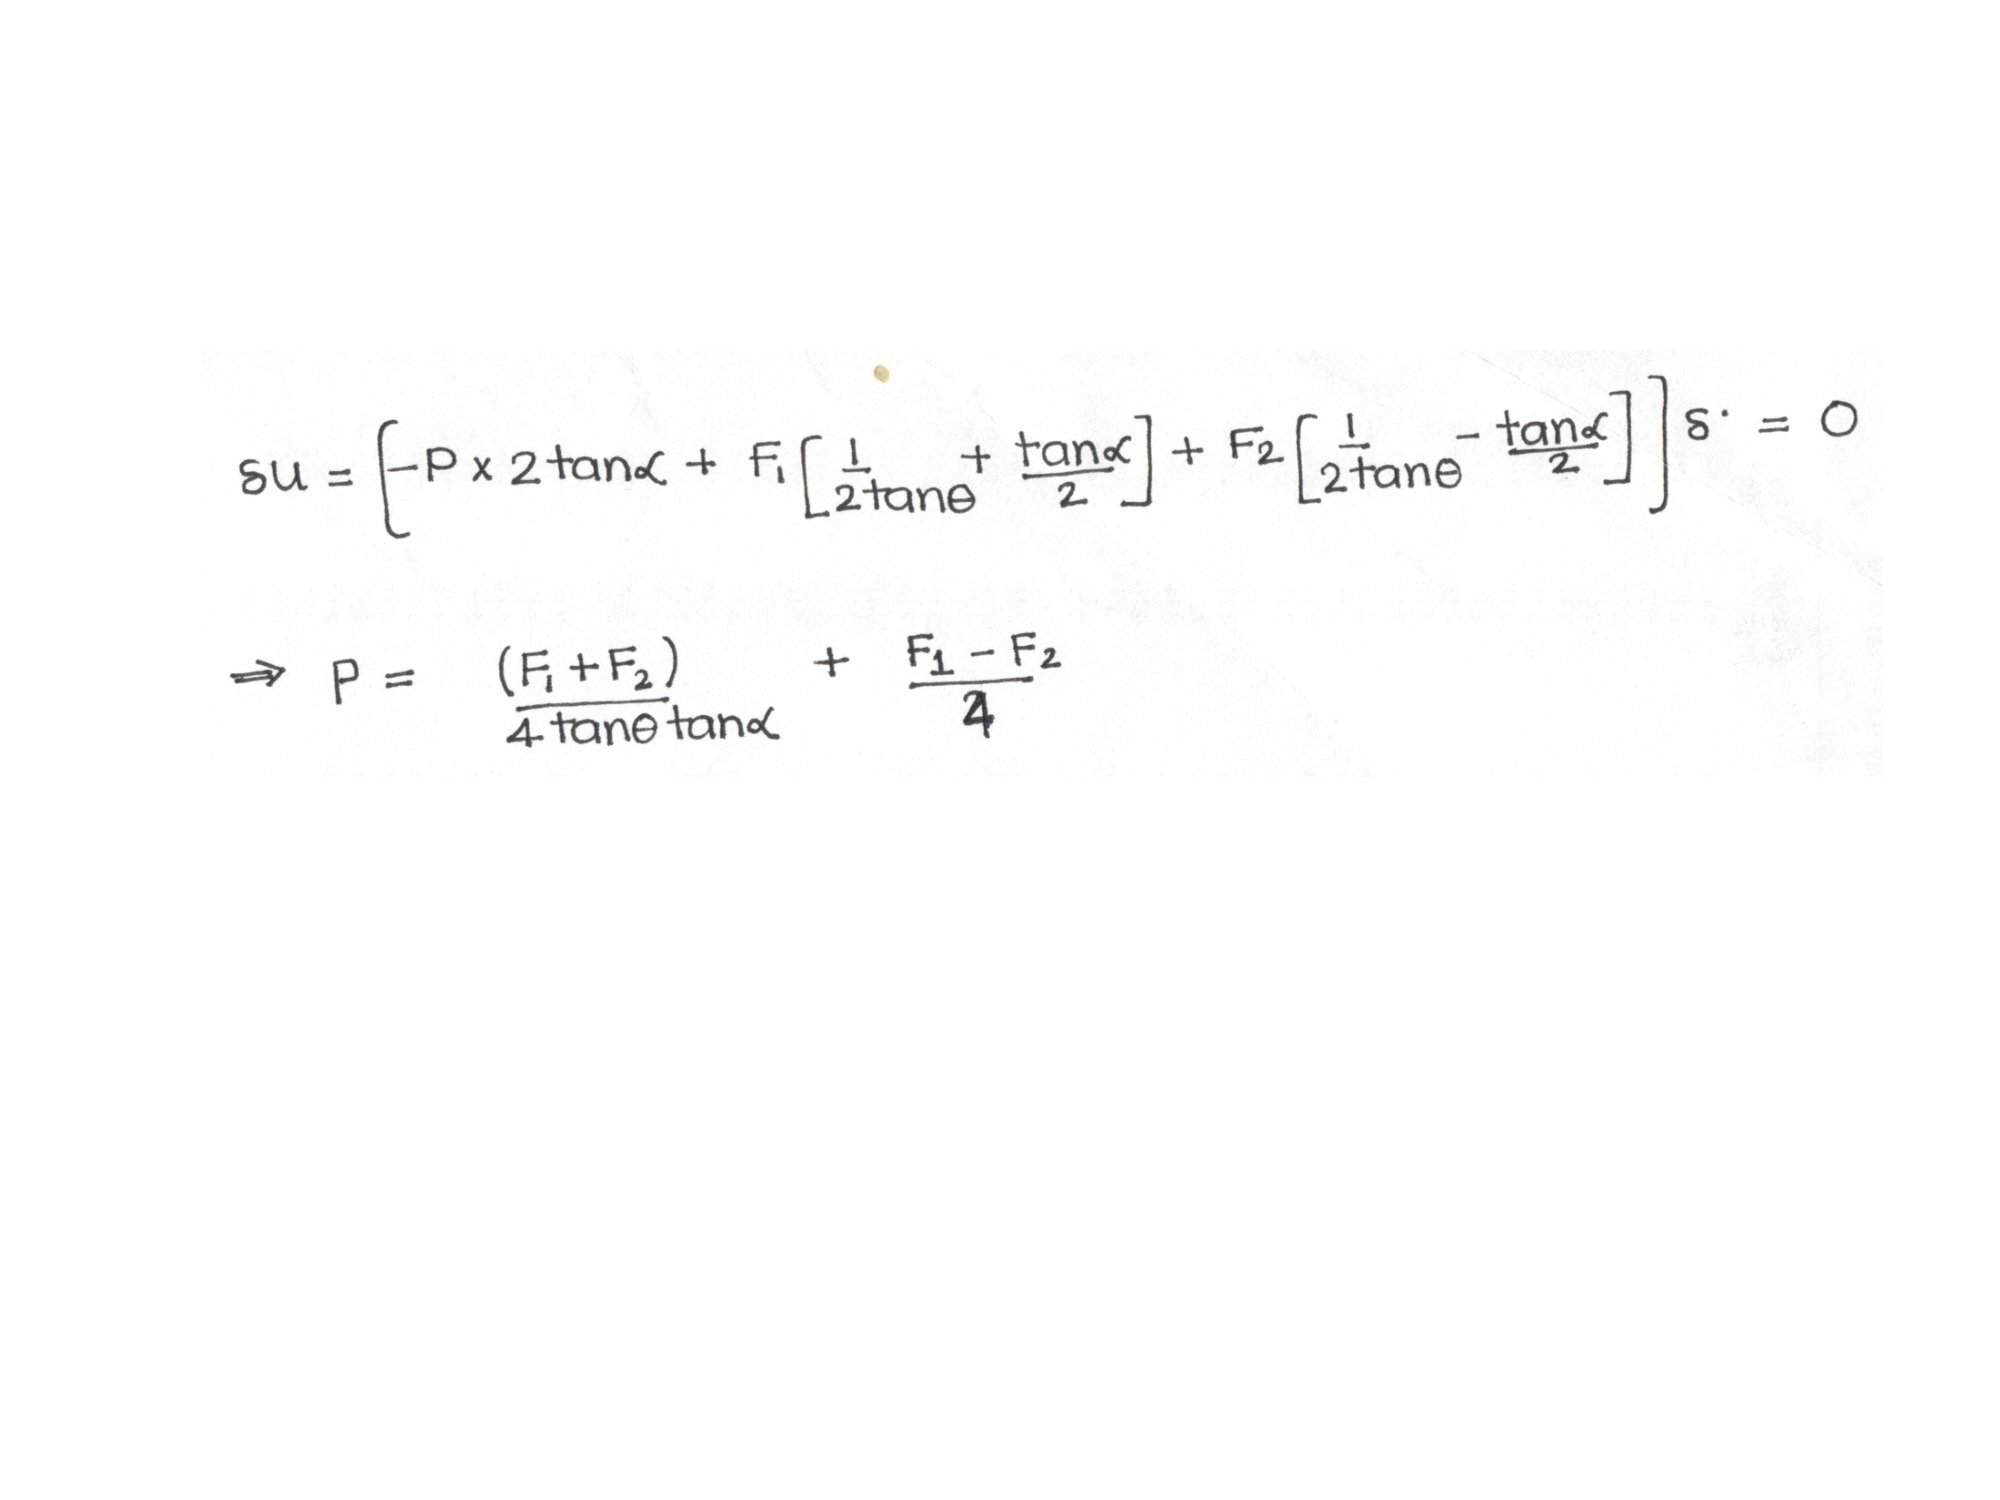 δu = [-P x 2tanα + F₁[1/2tanθ + tanα/2] + F₂[1/2tanθ - tanα/2]]δ· = 0
⇒ P = (F₁+F₂)/4tanθtanα + F₁-F₂/4